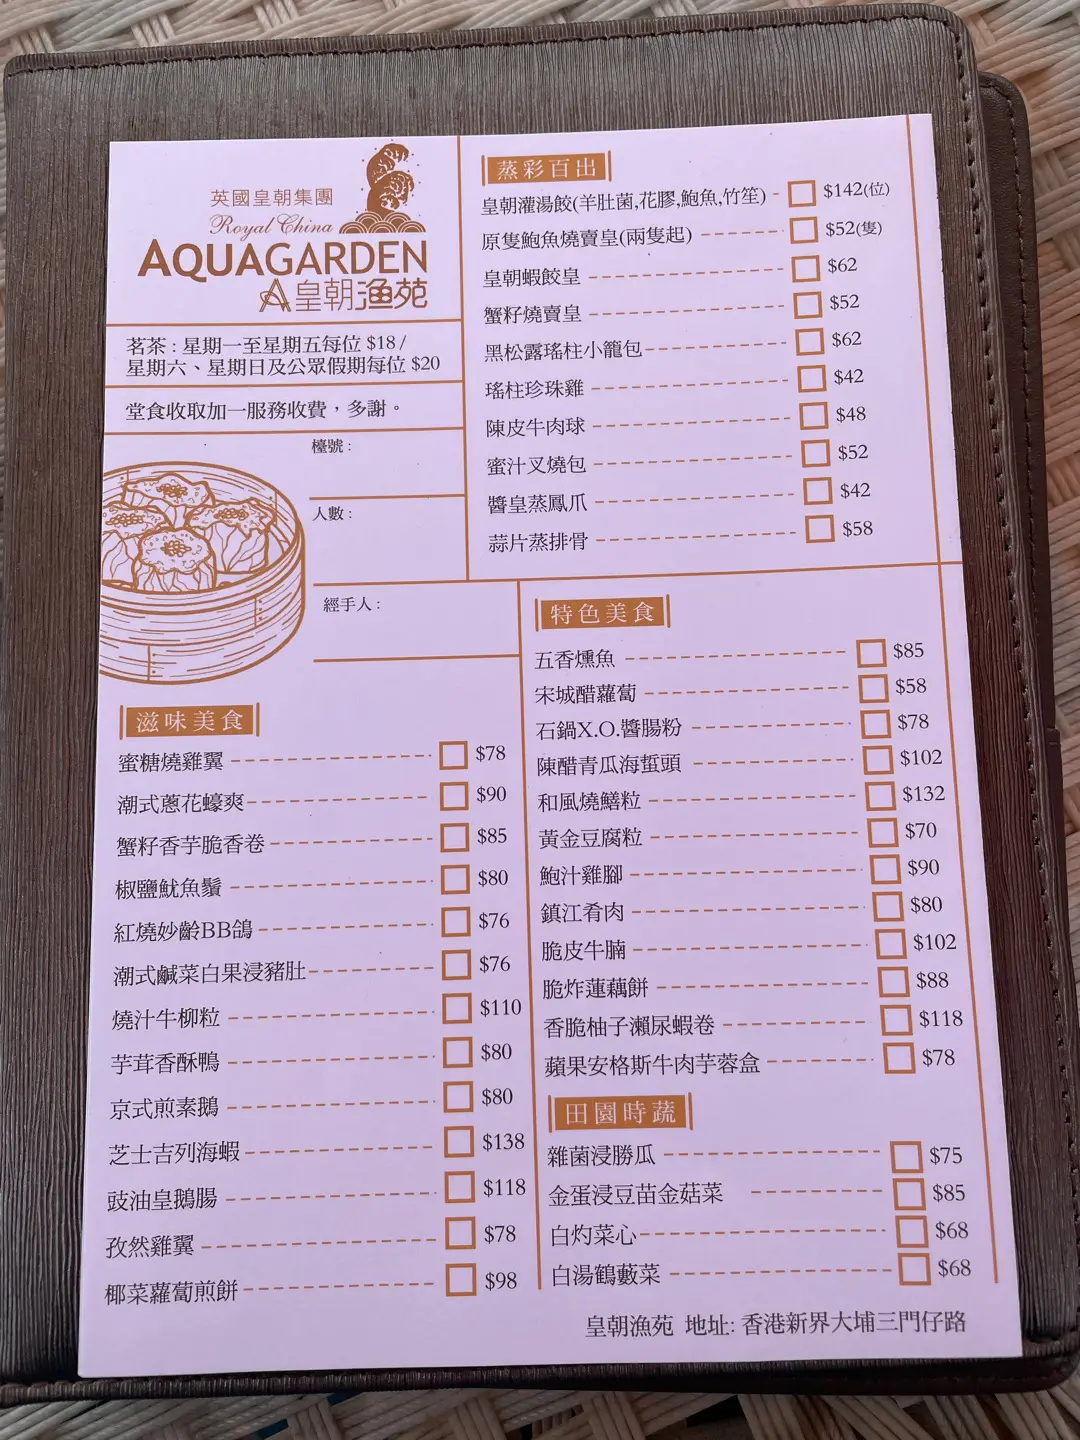 英國皇朝集團
Royal China
AQUAGARDEN
皇朝漁苑
茗茶 : 星期一至星期五每位 $18 /
星期六、星期日及公眾假期每位 $20
堂食收取加一服務收費，多謝。
檯號 :
人數 :
經手人 :
蒸彩百出
皇朝灌湯餃(羊肚菌,花膠,鮑魚,竹笙) $142(位)
原隻鮑魚燒賣皇(兩隻起) $52(隻)
皇朝蝦餃皇 $62
蟹籽燒賣皇 $52
黑松露瑤柱小籠包 $62
瑤柱珍珠雞 $42
陳皮牛肉球 $48
蜜汁叉燒包 $52
醬皇蒸鳳爪 $42
蒜片蒸排骨 $58
滋味美食
蜜糖燒雞翼 $78
潮式蔥花蠔爽 $90
蟹籽香芋脆香卷 $85
椒鹽魷魚鬚 $80
紅燒妙齡BB鴿 $76
潮式鹹菜白果浸豬肚 $76
燒汁牛柳粒 $110
芋茸香酥鴨 $80
京式煎素鵝 $80
芝士吉列海蝦 $138
豉油皇鵝腸 $118
孜然雞翼 $78
椰菜蘿蔔煎餅 $98
特色美食
五香燻魚 $85
宋城醋蘿蔔 $58
石鍋X.O.醬腸粉 $78
陳醋青瓜海蜇頭 $102
和風燒鱔粒 $132
黃金豆腐粒 $70
鮑汁雞腳 $90
鎮江肴肉 $80
脆皮牛腩 $102
脆炸蓮藕餅 $88
香脆柚子瀨尿蝦卷 $118
蘋果安格斯牛肉芋蓉盒 $78
田園時蔬
雜菌浸勝瓜 $75
金蛋浸豆苗金菇菜 $85
白灼菜心 $68
白湯鶴藪菜 $68
皇朝漁苑 地址: 香港新界大埔三門仔路